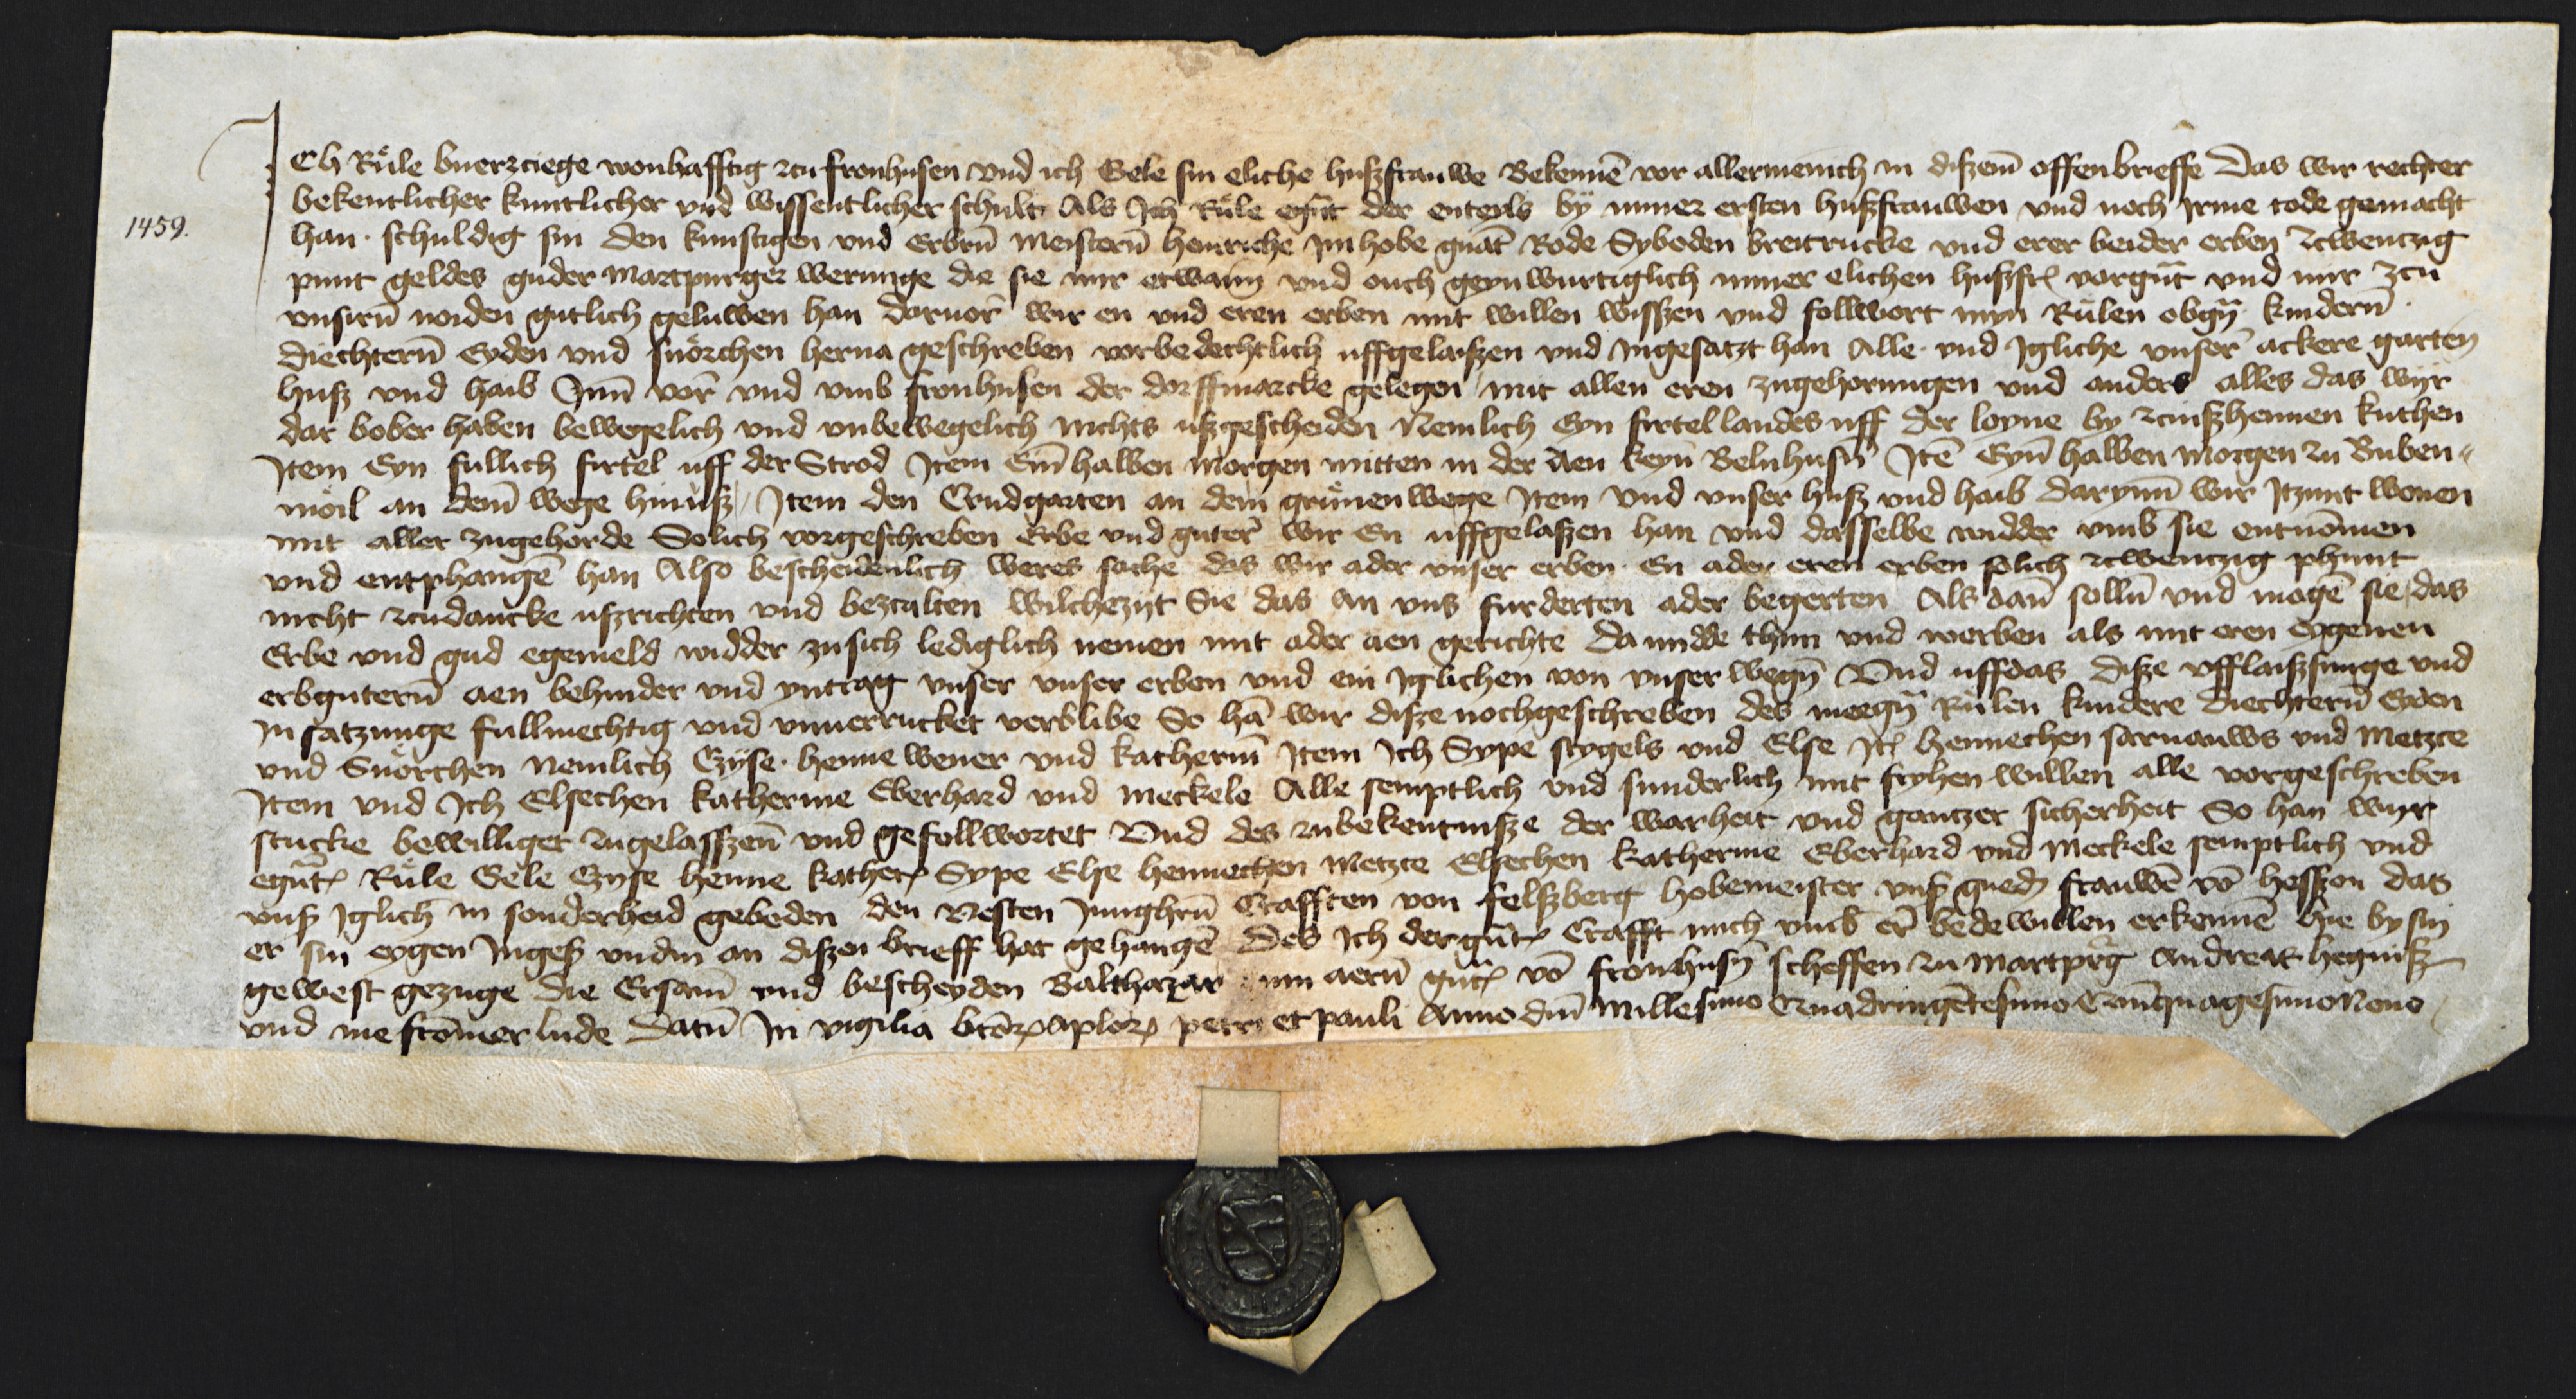 ICh Růle buerzciege wonhafftig zcu fronhusen vnd ich Gele sin eliche huszfrauwe Bekennē vor allermenich in diszem̄ offenbrieffe Das wir rechter
bekentlicher kuntlicher vnd wissentlicher schult Als Ich Růle egn̄t der enteyls by myner ersten huszfrauwen vnd noch Irme tode gemacht
1459.
han schuldig sin den kunstigen vnd Erbrn̄ meistern̄ henriche Im hobe gnāt Rode Syboden breitrucke vnd erer beider erben zcwenczig
punt geldes guder martpurger werunge die sie mir etwann vnd ouch geynwurtiglich myner elichen huszfr vorgn̄t vnd mir zcu
vnsirn̄ noiden gutlich geluwen han Daruor wir en vnd eren erben mit willen wisszen vnd follwort myn Rulen obgn̄ kindern̄
Diechtern̄ Eyden vnd snőrchen herna geschreben vorbedechtlich uffgelaiszen vnd Ingesatzt han Alle vnd Igliche vnser ackere garten
husz vnd haib Inn̄ vor vnd vmb fronhusen der dorffmarcke gelegen mit allen eren zugehorungen vnd anders alles das wyr
dar bober haben bewegelich vnd vnbewegelich nichts uszgescheiden Nemlich Eyn firtel landes uff der loyne by zcinszhennen kuchen
Item Eyn fullich firtel uff der Strod Item Ein̄ halben morgen mitten in der Aen keyn̄ Belnhusn̄ Itē Eyn̄ halben morgen zu Buben-
moil an dem̄ wege hinusz / Item den Crudgarten an dem gruͤnen wege Item vnd vnser husz vnd haib darynn̄ wir Itzunt wonen
mit aller zugehorde Solich vorgeschreben Erbe vnd guter wir En uffgelaszen han vnd dasselbe widder vmb sie entnōmen
vnd entphangē han Also bescheidenlich weres sache das wir ader vnser erben En ader eren erben solich zcwenczig phunt
nicht zcudancke uszrichten vnd bezcalten wilchezyt Sie das an vns furderten ader begerten Als dan̄ solln̄ vnd mogē sie das
Erbe vnd gud egemeld widder zu sich lediglich nemen mit ader aen gerichte Da midde thun vnd werben als mit eren eygenen
erbgutern̄ aen behinder vnd yntrag vnser vnser erben vnd ein Iglichen von vnser wegn̄ Vnd uffdas disze ufflaiszsunge vnd
In satzunge fullmechtig vnd vnuerrucket verblibe So hā wir disze nochgeschreben des meegn̄ Rulen kindere diechtern̄ Eyden
vnd Snőrchen Nemlich Gyse henne wener vnd katherin̄ Item Ich Sype stygels vnd Else It hennechen sarnauws vnd Metzce
Item vnd Ich Elsechen katherine Eberhard vnd meckele Alle semptlich vnd sunderlich mit fryhen willen alle vorgeschreben
stucke bewilliget zugelasszen̄ vnd gefollwortet Vnd des zubekentnisze der warheit vnd gantzer sicherheit So han wyr
egn̄t Růle Gele Gyse henne kather Sype Else hennechen Metzce Elsechen katherine Eberhard vnd Meckele semptlich vnd
vnszer Iglich in sonderheid gebeden den Vesten Junghrn̄ Crafften von felszberg hobemeister vnszer gned frauwē vō hesszen das
er sin eygen Ingesz vndin an diszen brieff hat gehangē Des Ich dergn̄t Crafft mich vmb er bede willen erkennē hie by sin
gewest gezuge die Ersam̄ vnd bescheyden Balthazar aern̄ gn̄t vō fronhusn̄ scheffen zu martprg Andreas hegnisz
vnd me frōmer lude Datū In vigilia btōr aplor petri et pauli Anno dn̄i Millesimo Quadringētesimo Quīquagesimo Nono